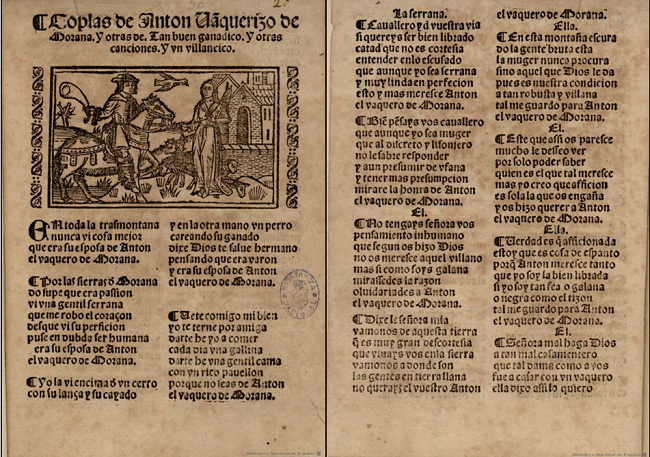 2.
¶Coplas de Anton Vaquerizo de
Morana. Y otras de. Tan buen ganadico. Y otras
canciones. Y vn villancico.
EN toda la trasmontana
nunca vi cosa mejor
que era su esposa de Anton
el vaquero de Morana.
¶Por las sierras ò Morana
do supe que era passion
vi vna gentil serrana
que me robo el coraçon
desque vi su perficion
puse en dubda ser humana
era su esposa de Anton
el vaquero de Morana.
¶Yo la vi encima ò vn cerro
con su lança y su cayado
y en la otra mano vn perro
careando su ganado
dixe Dios te salue hermano
pensando que era varon
y era su esposa de Anton
el vaquero de Morana.
¶Uete comigo mi bien
yo te terne por amiga
darte he yo a comer
cada dia vna gallina
darte he vna gentil cama
con vn rico pauellon
porque no seas de Anton
el vaquero de Morana.
La serrana.
¶Cauallero yd vuestra via
si quereys ser bien librado
catad que no es cortesia
entender en lo escusado
que aunque yo sea serrana
y muy linda en perfecion
esto y mas meresce Anton
el vaquero de Morana.
¶Biẽ pẽsays vos cauallero
que aunque yo sea muger
que al discreto y lisonjero
no le sabre responder
y aun presumir de vfana
y tener mas presumpcion
mirare la honra de Anton
el vaquero de Morana.
El.
¶No tengays señora vos
pensamiento inhumano
que segun os hizo Dios
no os meresce aquel villano
mas si como soys galana
mirassedes la razon
oluidariades a Anton
el vaquero de Morana.
¶Dixe le señora mia
vamonos de aquesta tierra
q̃ es muy gran descortesia
que viuays vos en la sierra
vamonos a donde son
las gentes en tierra llana
no querays el vuestro Anton
el vaquero de Morana.
Ella.
¶En esta montaña escura
do la gente bruta esta
la muger nunca procura
sino aquel que Dios le da
pues es nuestra condicion
a tan robusta y villana
tal me guardo para Anton
el vaquero de Morana.
El.
¶Este que assi os paresce
mucho le desseo ver
por solo poder saber
quien es el que tal meresce
mas yo creo que afficion
es sola la que os engaña
y os hizo querer a Anton
el vaquero de Morana.
Ella.
¶Uerdad es q̃ afficionada
estoy que es cosa de espanto
porq̃ Anton meresce tanto
que yo soy la bien librada
si yo soy tan fea o galana
o negra como el tizon
tal me guardo para Anton
el vaquero de Morana.
El.
¶Señora mal haga Dios
a tan mal casamentero
que tal dama como a vos
fue a casar con vn vaquero
ella dixo assi lo quiero